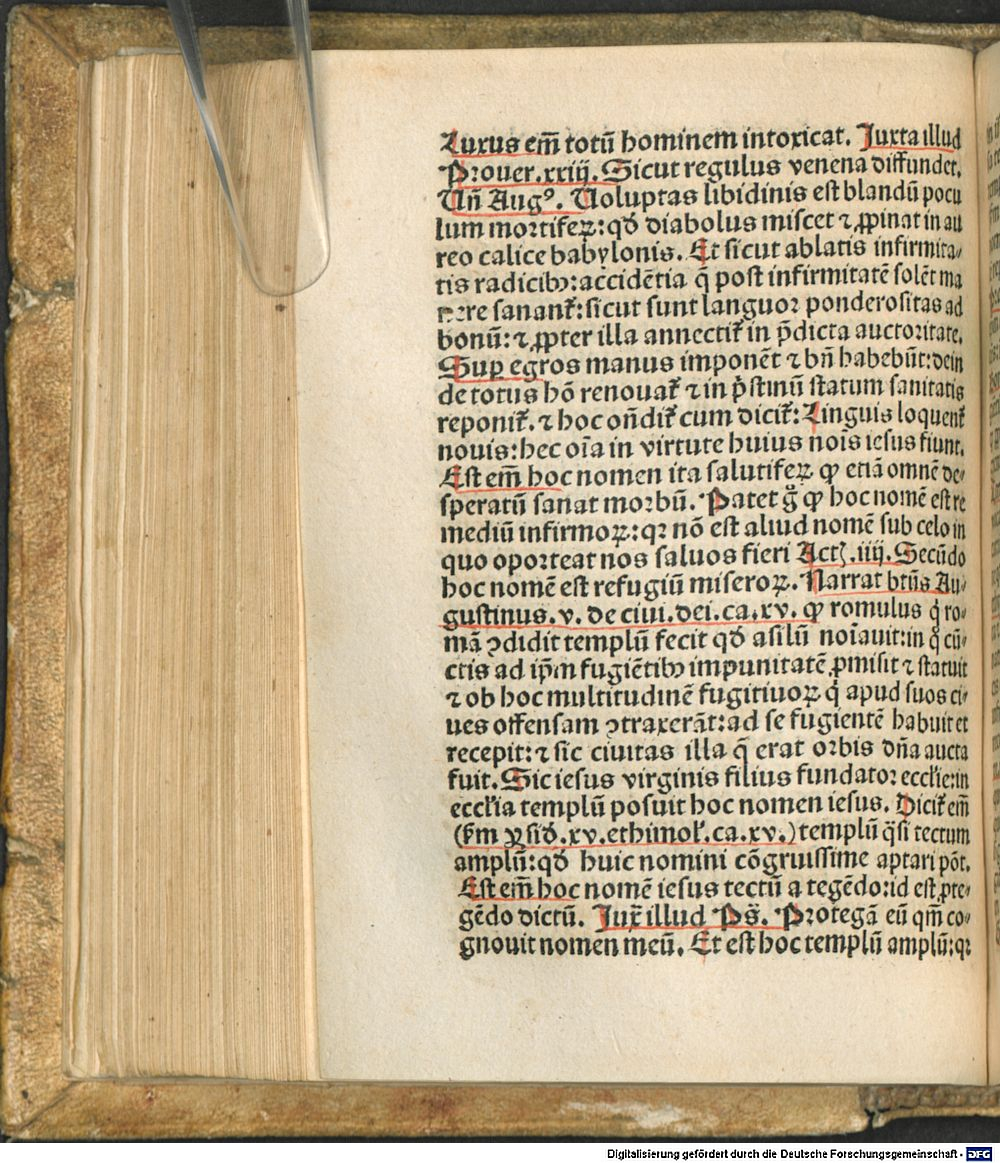 Luxus em̄ totū hominem intoxicat. Juxta illud
Prouer. xxiij. Sicut regulus venena diffundet.
Un̄ Augꝰ. Uoluptas libidinis est blandū pocu
lum mortiferꝝ: qd̓ diabolus miscet ⁊ ꝓpinat in au
reo calice babylonis. Et sicut ablatis infirmita⸗
tis radicibꝰ: accidētia q̄ post infirmitatē solēt ma
nere sanant᷑: sicut sunt languor ponderositas ad
bonū: ⁊ ꝓpter illa annectit᷑ in p̄dicta auctoritate.
Suꝑ egros manus imponēt ⁊ bn̄ habebūt: dein
de totus hō renouat᷑ ⁊ in pͥstinū statum sanitatis
reponit᷑. ⁊ hoc on̄dit᷑ cum dicit᷑: Linguis loquent᷑
nouis: hec oīa in virtute huius nōis iesus fiunt.
Est em̄ hoc nomen ita salutiferꝝ ꝙ etiā omnē de⸗
speratū sanat morbū. Patet gͦ ꝙ hoc nomē est re
mediū infirmoꝝ: qꝛ nō est aliud nomē sub celo in
quo oporteat nos saluos fieri Actꝭ. iiij. Secūdo
hoc nomē est refugiū miseroꝝ. Narrat btūs Au⸗
gustinus. v. de ciui. dei. ca. xv. ꝙ romulus qͥ ro⸗
mā ꝯdidit templū fecit qd̓ asilū noīauit: in qͦ cū⸗
ctis ad ip̄m fugiētibꝰ impunitatē ꝓmisit ⁊ statuit
⁊ ob hoc multitudinē fugitiuoꝝ qͥ apud suos ci⸗
ues offensam ꝯtraxerāt: ad se fugientē habuit et
recepit: ⁊ sic ciuitas illa q̄ erat orbis dn̄a aucta
fuit. Sic iesus virginis filius fundator eccl̓ie: in
eccl̓ia templū posuit hoc nomen iesus. Dicit᷑ em̄
(ẜm ysid̓. xv. ethimol̓. ca. xv.) templū q̄si tectum
amplū: qd̓ huic nomini cōgruissime aptari pōt.
Est em̄ hoc nomē iesus tectū a tegēdo: id est ꝓte⸗
gēdo dictū. Jux᷑ illud Ps̄. Protegā eū qm̄ co⸗
gnouit nomen meū. Et est hoc templū amplū: qꝛ
Digitalisierung gefördert durch die Deutsche Forschungsgemeinschaft - DFG